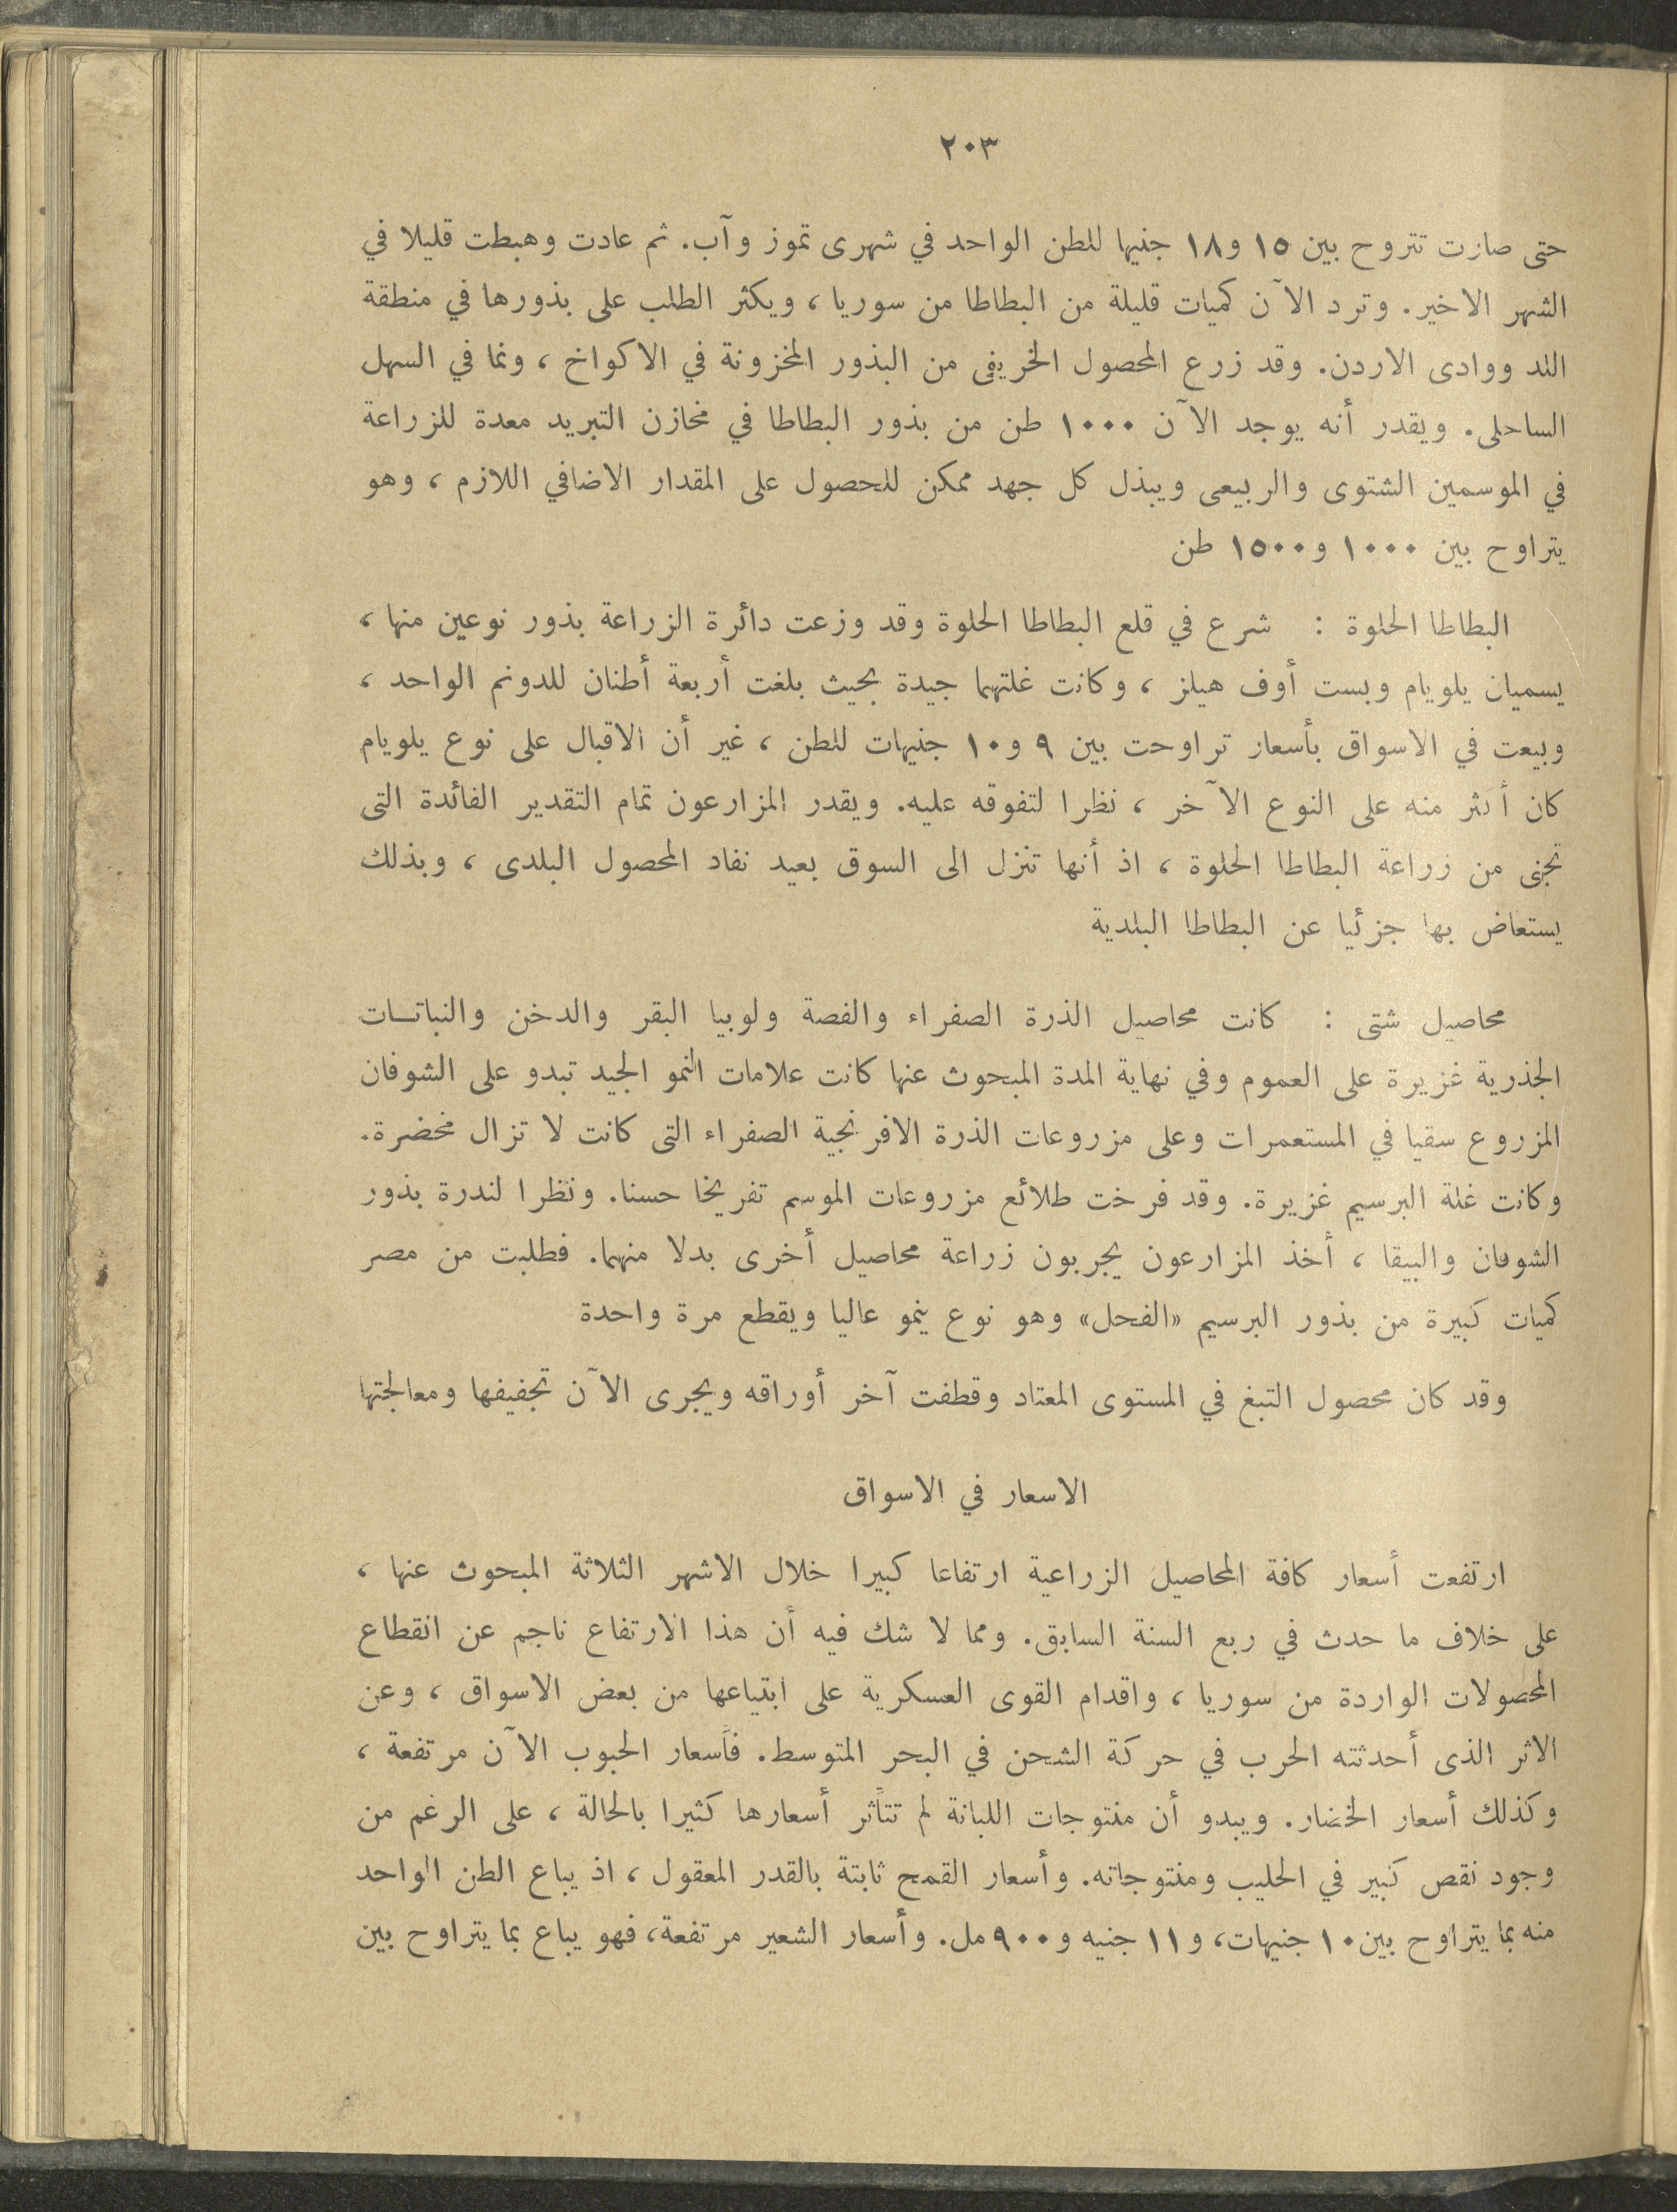 ٢٠٣
حتى صارت تتروح بين ١٥ و١٨ جنيها للطن الواحد في شهرى تموز وآب. ثم عادت وهبطت قليلا في
الشهر الاخير. وترد الآن كميات قليلة من البطاطا من سوريا ، ويكثر الطلب على بذورها في منطقة
اللد ووادى الاردن. وقد زرع المحصول الخريفى من البذور المخزونة في الاكواخ ، ونما في السهل
الساحلى. ويقدر أنه يوجد الآن ١٠٠٠ طن من بذور البطاطا في مخازن التبريد معدة للزراعة
في الموسمين الشتوى والربيعى ويبذل كل جهد ممكن للحصول على المقدار الاضافي اللازم ، وهو
يتراوح بين ١٠٠٠ و١٥٠٠ طن
البطاطا الحلوة : شرع في قلع البطاطا الحلوة وقد وزعت دائرة الزراعة بذور نوعين منها ،
يسميان يلويام وبست أوف هيلز ، وكانت غلتهما جيدة بحيث بلغت أربعة أطنان للدونم الواحد ،
وبيعت في الاسواق بأسعار تراوحت بين ٩ و١٠ جنيهات للطن ، غير أن الاقبال على نوع يلويام
كان أكثر منه على النوع الآخر ، نظرا لتفوقه عليه. ويقدر المزارعون تمام التقدير الفائدة التى
تجنى من زراعة البطاطا الحلوة ، اذ أنها تنزل الى السوق بعيد نفاد المحصول البلدى ، وبذلك
يستعاض بها جزئيا عن البطاطا البلدية
محاصيل شتى : كانت محاصيل الذرة الصفراء والفصة ولوبيا البقر والدخن والنباتات
الجذرية غزيرة على العموم وفي نهاية المدة المبحوث عنها كانت علامات النمو الجيد تبدو على الشوفان
المزروع سقيا في المستعمرات وعلى مزروعات الذرة الافرنجية الصفراء التى كانت لا تزال مخضرة.
وكانت غلة البرسيم غزيرة. وقد فرخت طلائع مزروعات الموسم تفريخا حسنا. ونظرا لندرة بذور
الشوفان والبيقا ، أخذ المزارعون يجربون زراعة محاصيل أخرى بدلا منهما. فطلبت من مصر
كميات كبيرة من بذور البرسيم «الفحل» وهو نوع ينمو عاليا ويقطع مرة واحدة
وقد كان محصول التبغ في المستوى المعتاد وقطفت آخر أوراقه ويجرى الآن تجفيفها ومعالجتها
الاسعار في الاسواق
ارتفعت أسعار كافة المحاصيل الزراعية ارتفاعا كبيرا خلال الاشهر الثلاثة المبحوث عنها ،
على خلاف ما حدث في ربع السنة السابق. ومما لا شك فيه أن هذا الارتفاع ناجم عن انقطاع
المحصولات الواردة من سوريا ، واقدام القوى العسكرية على ابتياعها من بعض الاسواق ، وعن
الاثر الذى أحدثته الحرب في حركة الشحن في البحر المتوسط. فأسعار الحبوب الآن مرتفعة ،
وكذلك أسعار الخضار. ويبدو أن منتوجات اللبانة لم تتأثر أسعارها كثيرا بالحالة ، على الرغم من
وجود نقص كبير في الحليب ومنتوجاته. وأسعار القمح ثابتة بالقدر المعقول ، اذ يباع الطن الواحد
منه بما يتراوح بين ١٠ جنيهات، و١١ جنيه و٩٠٠ مل. وأسعار الشعير مرتفعة، فهو يباع بما يتراوح بين